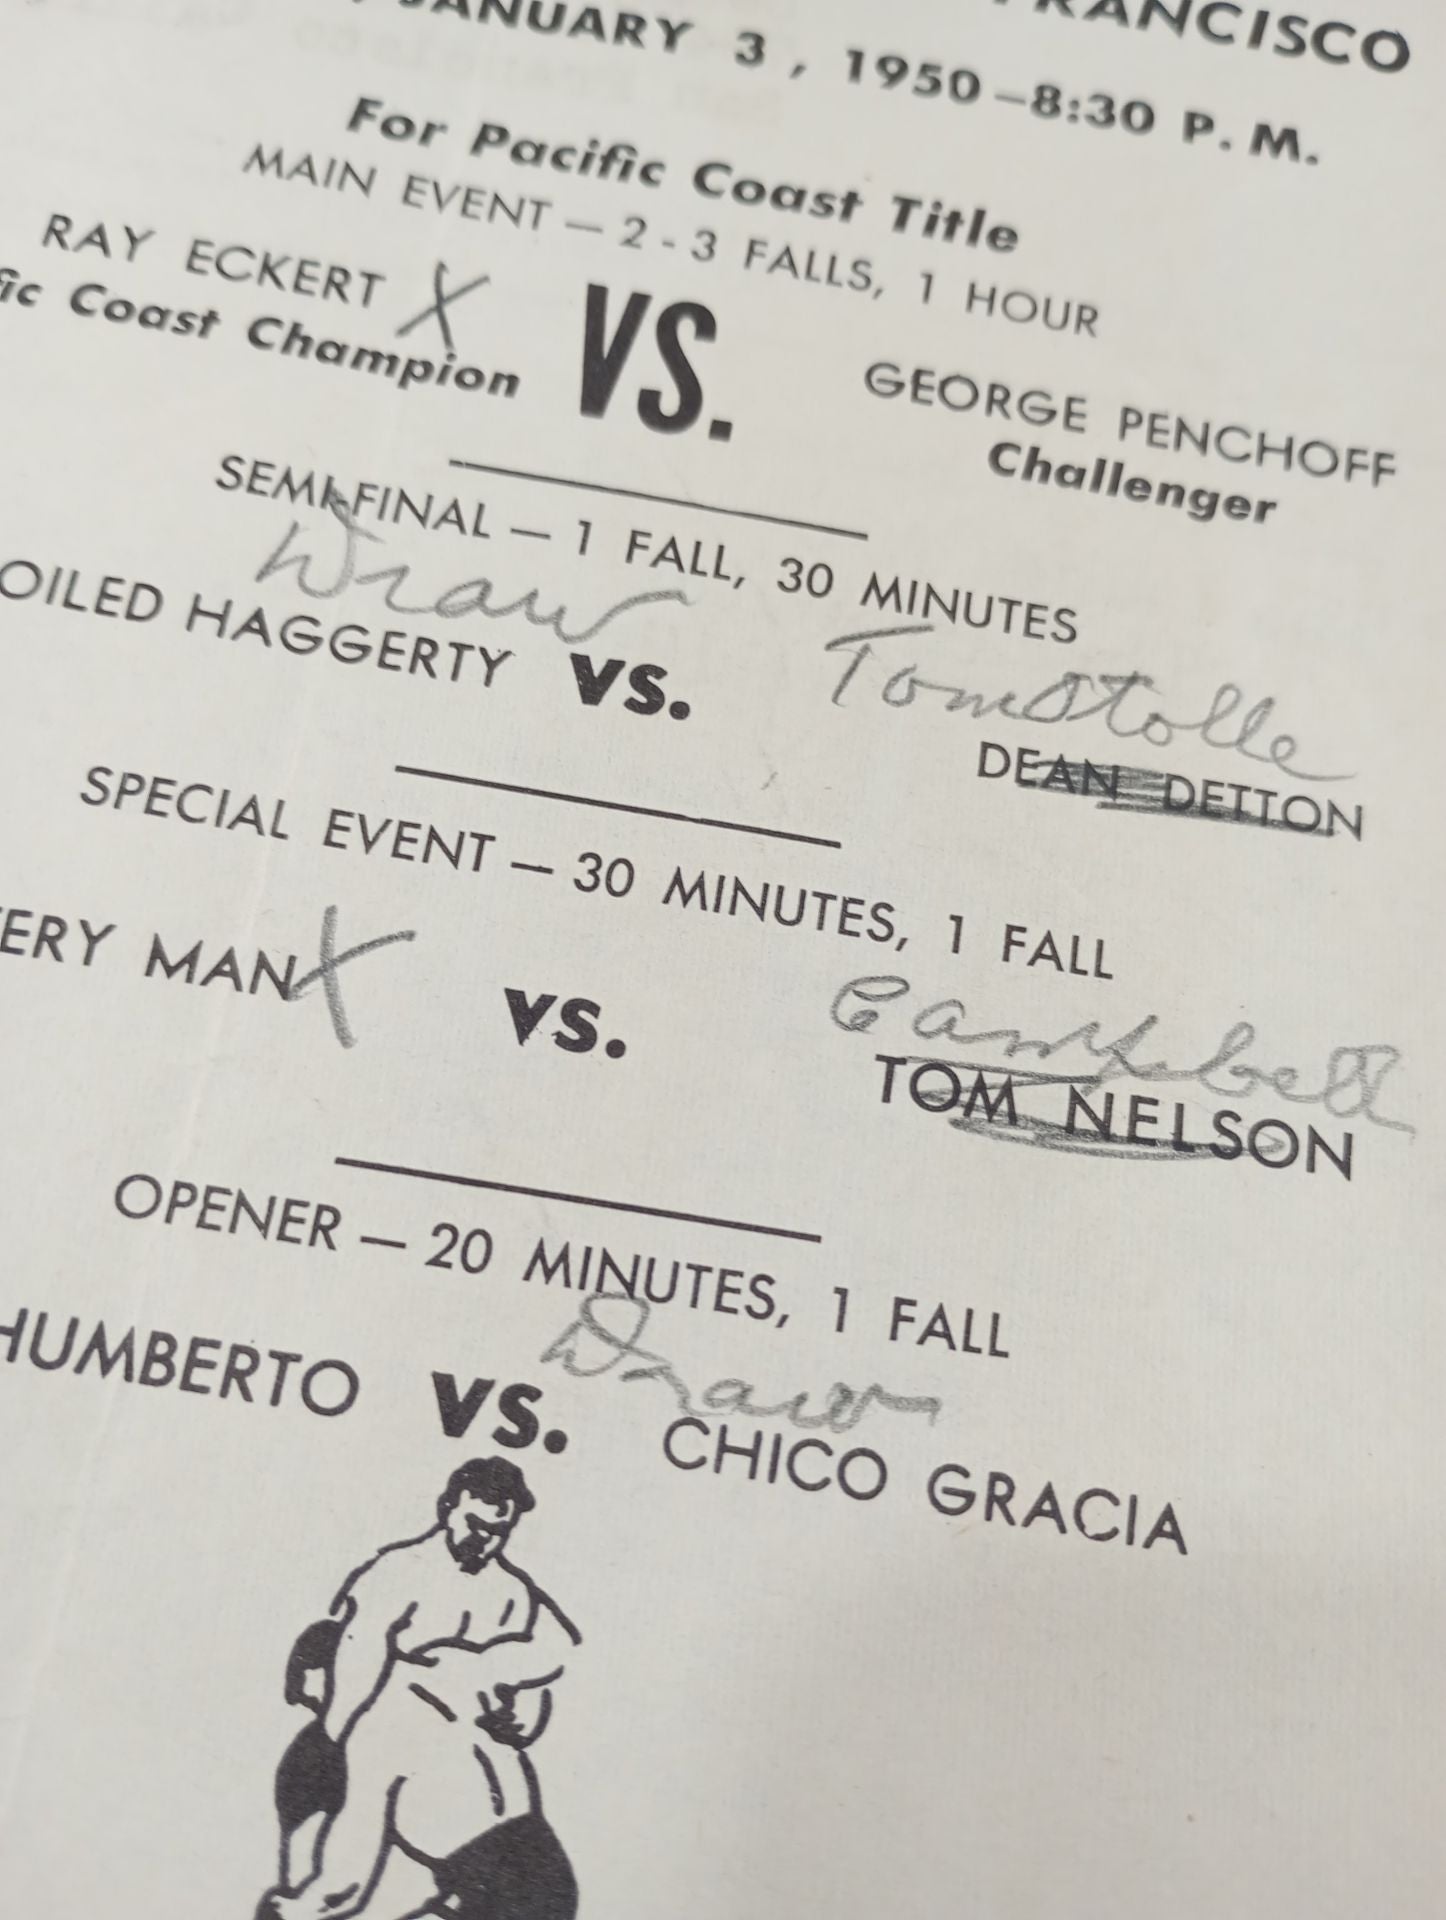 FRANCISCO
JANUARY 3, 1950–8:30 P. M.
For Pacific Coast Title
MAIN EVENT — 2 - 3 FALLS, 1 HOUR
RAY ECKERT X VS. GEORGE PENCHOFF
fic Coast Champion Challenger
SEMI-FINAL — 1 FALL, 30 MINUTES
Draw Tom Stolle
OILED HAGGERTY VS. DEAN DETTON
SPECIAL EVENT — 30 MINUTES, 1 FALL
Campbell
ERY MAN X VS. TOM NELSON
OPENER — 20 MINUTES, 1 FALL
Draw
HUMBERTO VS. CHICO GRACIA